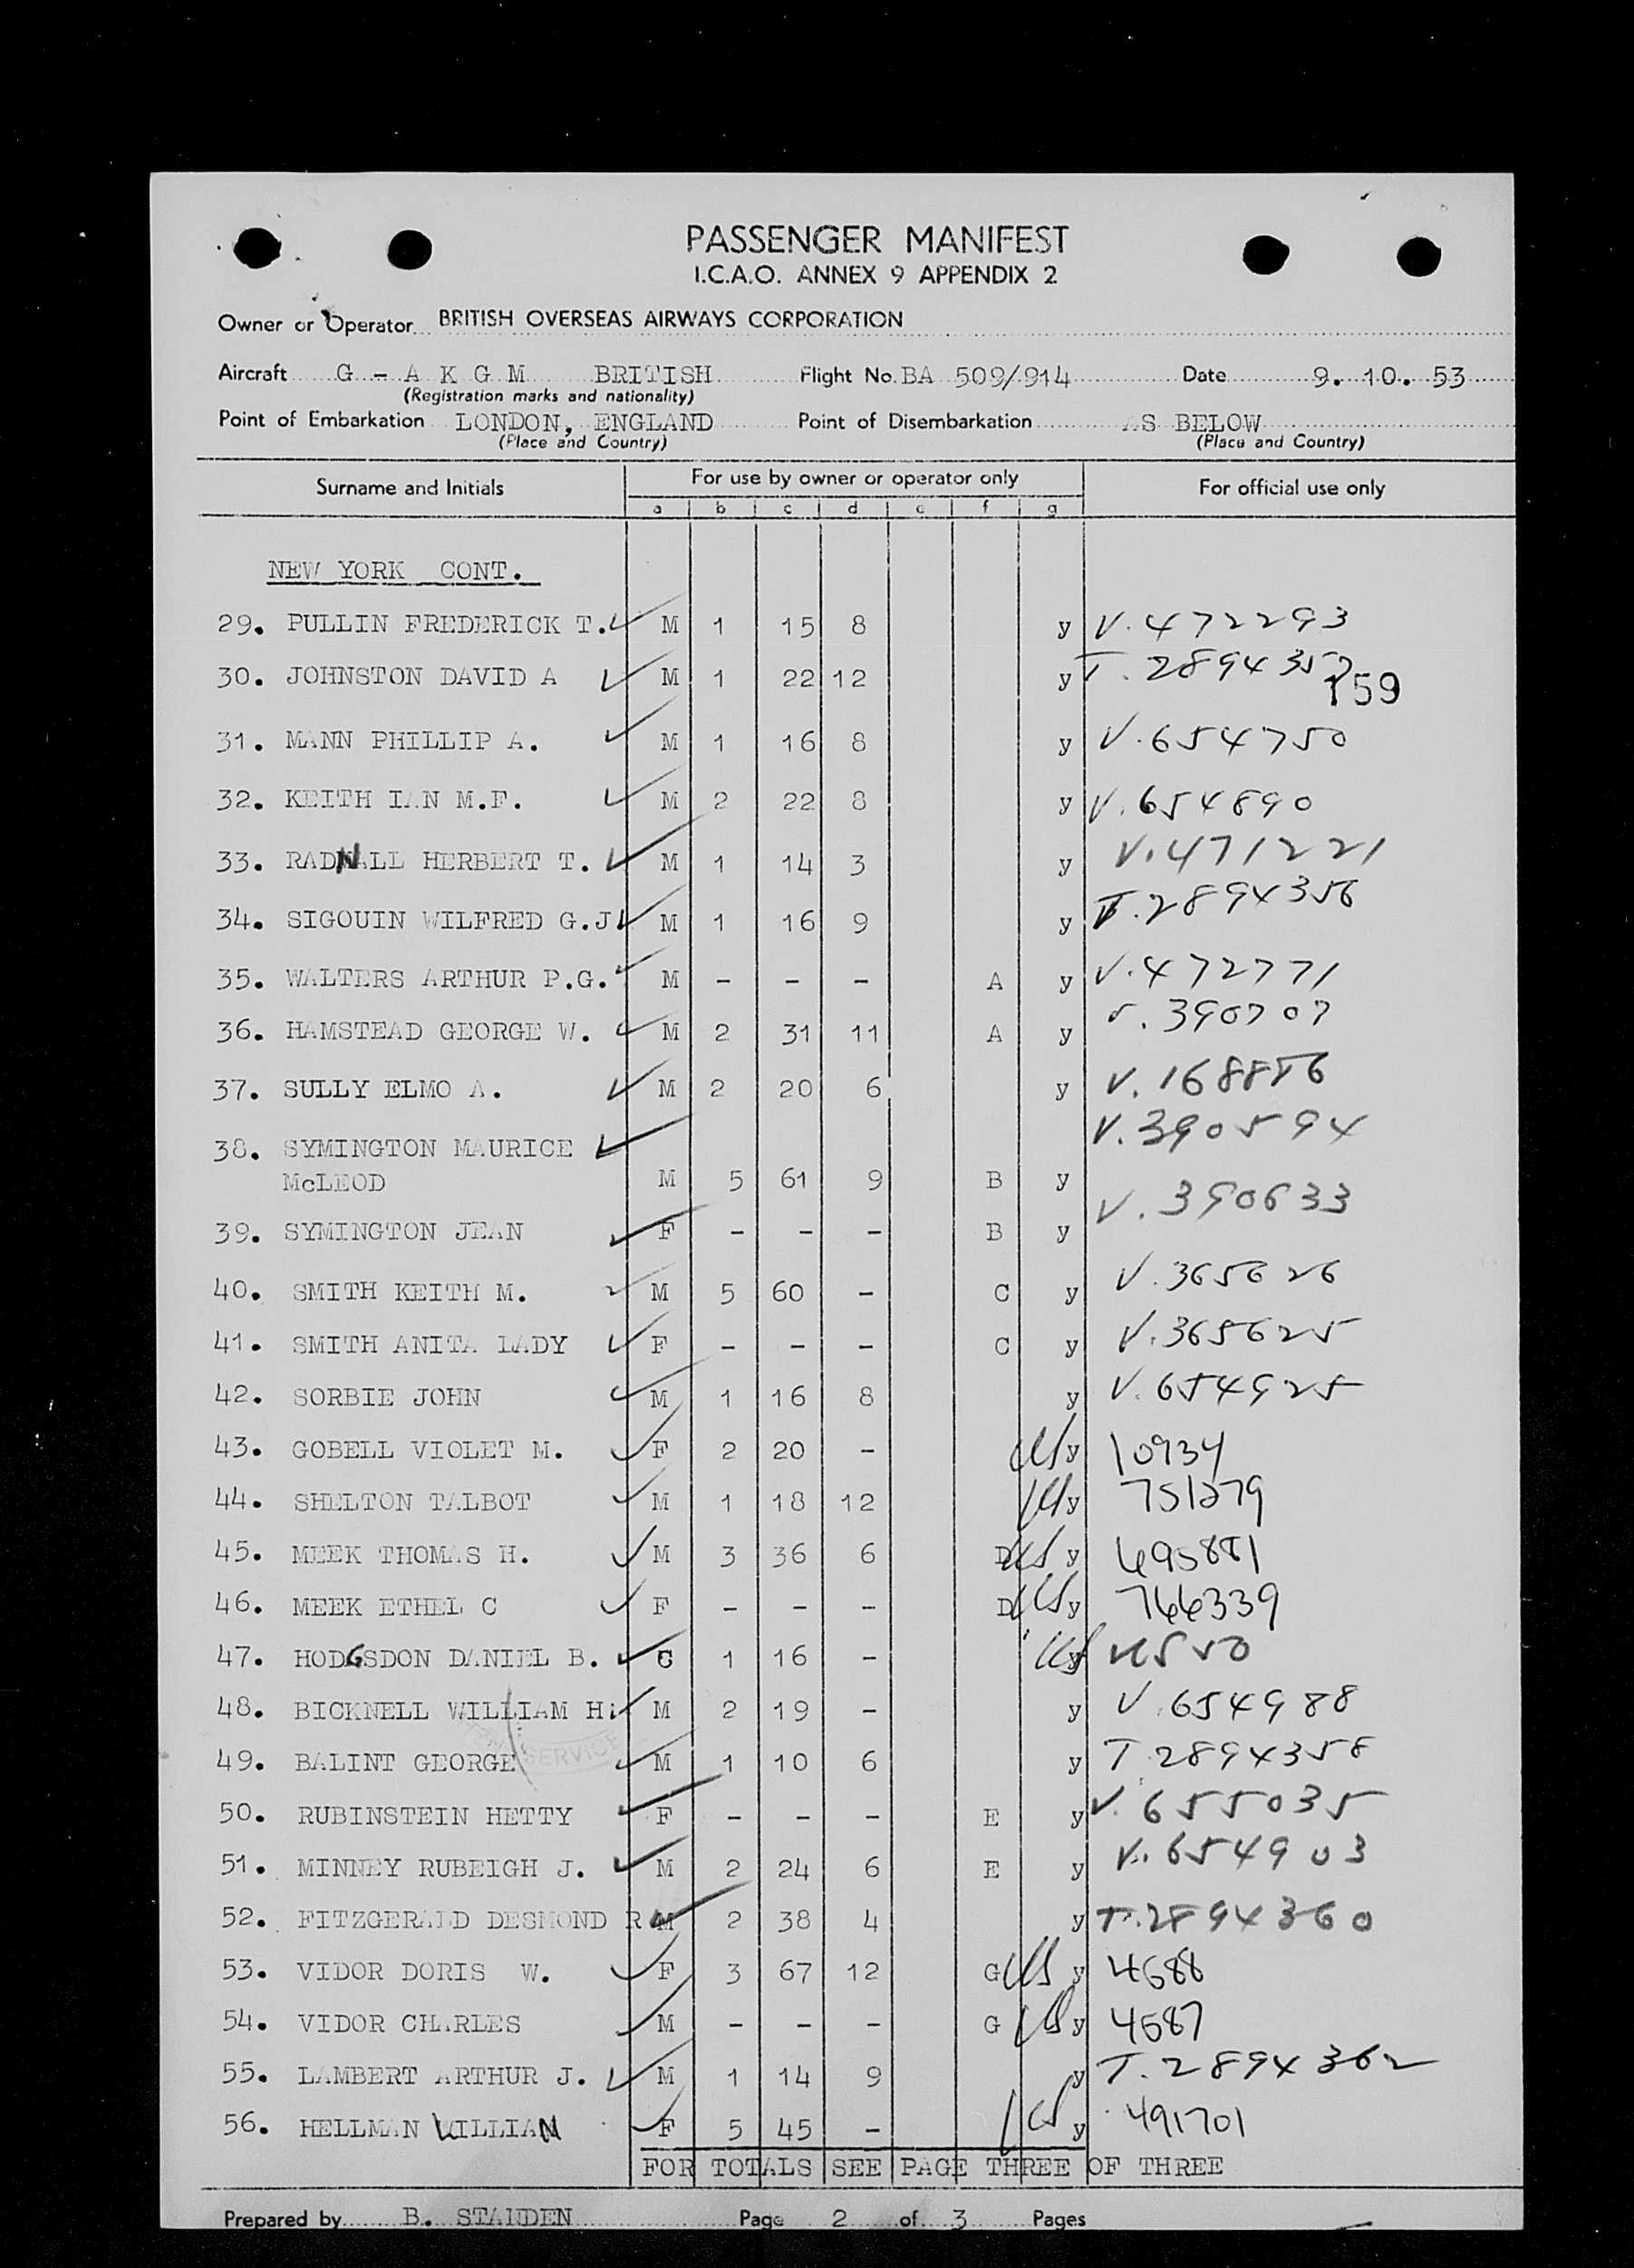 PASSENGER MANIFEST
I.C.A.O. ANNEX 9 APPENDIX 2
Owner or Operator BRITISH OVERSEAS AIRWAYS CORPORATION
Aircraft G - A K G M BRITISH Flight No. BA 509/914 Date 9. 10. 53
(Registration marks and nationality)
Point of Embarkation LONDON, ENGLAND Point of Disembarkation AS BELOW
(Place and Country) (Place and Country)
Surname and Initials For use by owner or operator only For official use only
a b c d e f g
NEW YORK CONT.
29. PULLIN FREDERICK T. M 1 15 8 y V.472293
30. JOHNSTON DAVID A M 1 22 12 y T.2894357
159
31. MANN PHILLIP A. M 1 16 8 y V.654750
32. KEITH IAN M.F. M 2 22 8 y V.654890
33. RADNALL HERBERT T. M 1 14 3 y V.471221
34. SIGOUIN WILFRED G.J M 1 16 9 y T.2894356
35. WALTERS ARTHUR P.G. M - - - A y V.472771
36. HAMSTEAD GEORGE W. M 2 31 11 A y 390707
37. SULLY ELMO A. M 2 20 6 y V.168856
38. SYMINGTON MAURICE V.390594
McLEOD M 5 61 9 B y
39. SYMINGTON JEAN F - - - B y V.390633
40. SMITH KEITH M. M 5 60 - C y V.365626
41. SMITH ANITA LADY F - - - C y V.365625
42. SORBIE JOHN M 1 16 8 y V.654925
43. GOBELL VIOLET M. F 2 20 - US y 10934
44. SHELTON TALBOT M 1 18 12 US y 751279
45. MEEK THOMAS H. M 3 36 6 D US y 495881
46. MEEK ETHEL C F - - - D US y 766339
47. HODGSDON DANIEL B. C 1 16 - US y
48. BICKNELL WILLIAM H. M 2 19 - y V.654988
49. BALINT GEORGE M 1 10 6 y T.2894358
SERVICE
50. RUBINSTEIN HETTY F - - - E y V.655035
51. MINNEY RUBEIGH J. M 2 24 6 E y V.654903
52. FITZGERALD DESMOND R M 2 38 4 y T.2894360
53. VIDOR DORIS W. F 3 67 12 G US y 4588
54. VIDOR CHARLES M - - - G US y 4587
55. LAMBERT ARTHUR J. M 1 14 9 y T.2894362
56. HELLMAN LILLIAN F 5 45 - US y 491701
FOR TOTALS SEE PAGE THREE OF THREE
Prepared by B. STANDEN Page 2 of 3 Pages